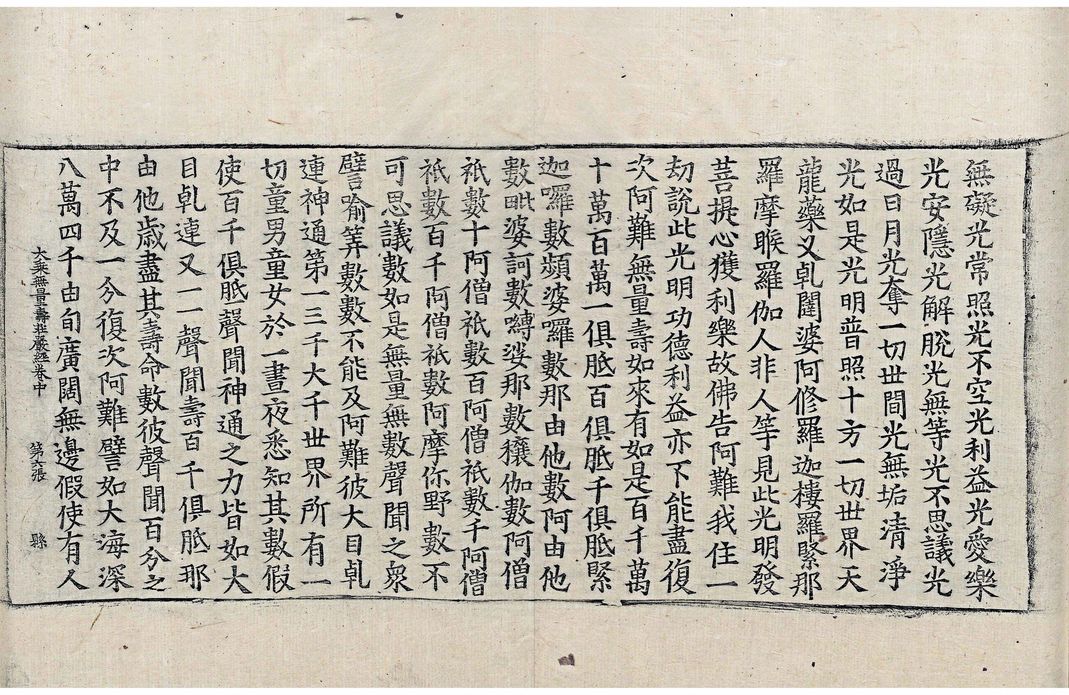 無礙光常照光不空光利益光愛樂
光安隱光解脫光無等光不思議光
過日月光奪一切世間光無垢清淨
光如是光明普照十方一切世界天
龍藥叉乹闥婆阿修羅迦樓羅緊那
羅摩睺羅伽人非人等見此光明發
菩提心獲利樂故佛告阿難我住一
劫說此光明功德利益亦下能盡復
次阿難無量壽如來有如是百千萬
十萬百萬一俱胝百俱胝千俱胝緊
迦囉數頻婆囉數那由他數阿由他
數毗婆訶數嚩娑那數穰伽數阿僧
祇數十阿僧祇數百阿僧祇數千阿僧
祇數百千阿僧祇數阿摩你野數不
可思議數如是無量無數聲聞之衆
譬喻筭數數不能及阿難彼大目乹
連神通第一三千大千世界所有一
切童男童女於一晝夜悉知其數假
使百千俱胝聲聞神通之力皆如大
目乹連又一一聲聞壽百千俱胝那
由他歲盡其壽命數彼聲聞百分之
中不及一分復次阿難譬如大海深
八萬四千由旬廣闊無邊假使有人
大乘無量壽莊嚴經卷中 第六張 縣